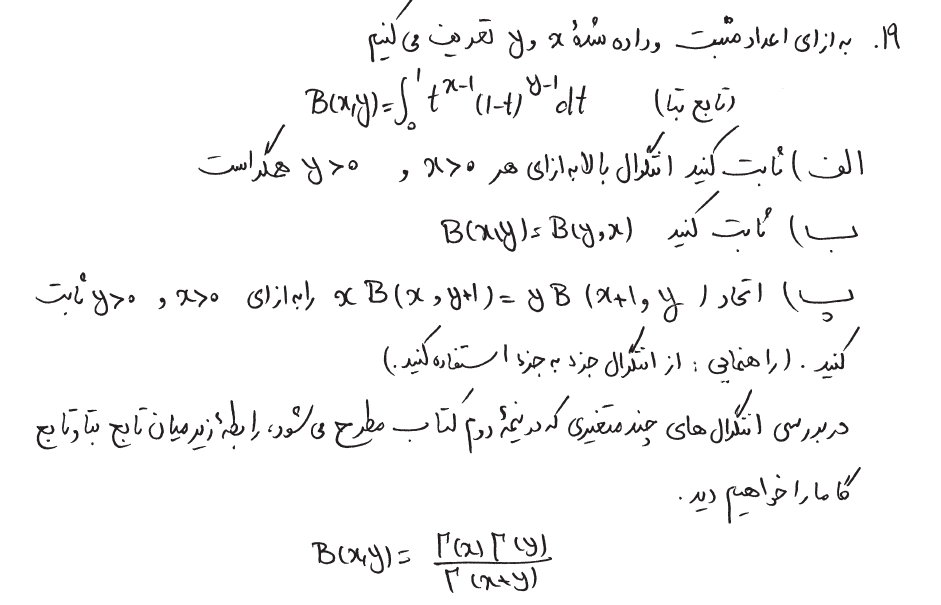 ۱۹. به ازای اعداد مثبت و داده شدهٔ x و y تعریف می کنیم
B(x,y)=∫₀¹ t^{x-1} (1-t)^{y-1} dt (تابع بتا)
الف) ثابت کنید انتگرال بالا به ازای هر x>0 و y>0 همگراست
ب) ثابت کنید B(x,y)=B(y,x)
پ) اتحاد x B(x,y+1)=y B(x+1,y) را به ازای x>0 و y>0 ثابت
کنید. (راهنمایی: از انتگرال جزء به جزء استفاده کنید.)
در بررسی انتگرال های چند متغیری که در نیمهٔ دوم کتاب مطرح می شود، رابطهٔ زیر میان تابع بتا و تابع
گاما را خواهیم دید.
B(x,y)= Γ(x)Γ(y) / Γ(x+y)